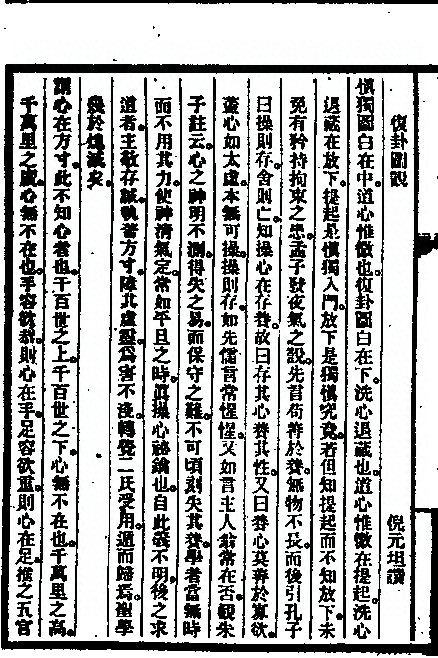 復卦圖說
倪元坦讚
慎獨圖白在中。道心惟微也。復卦圖白在下。洗心退藏也。道心惟微在提起。洗心
退藏在放下。提起是慎獨入門。放下是獨慎究竟。若但知提起而不知放下。未
免有矜持拘束之患。孟子發夜氣之說。先言苟得於養。無物不長。而後引孔子
曰操則存。舍則亡。知操心在存養。故曰存其心養其性。又曰養心莫善於寡欲。
蓋心如太虛。本無可操。操則存。如先儒言常惺惺。又如言主人翁常在否。觀朱
子註云。心之神明不測。得失之易。而保守之難。不可頃刻失其養。學者當無時
而不用其力。使神清氣定。常如平旦之時。真操心祕鑰也。自此義不明。後之求
道者主敬存誠。執著方寸。障其虛靈。為害不淺。轉覺二氏受用。遁而歸焉。聖學
幾於熄滅矣。
謂心在方寸。此不知心者也。千百世之上。千百世之下。心無不在也。千萬里之高。
千萬里之廣。心無不在也。手容欲恭。則心在手。足容欲重。則心在足。推之五官